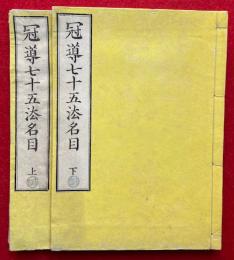 冠導七十五法名目
上
冠導七十五法名目
下